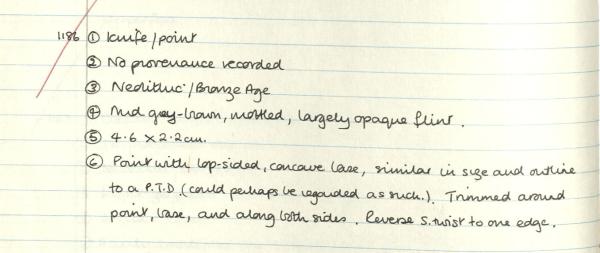 1186 ① Knife/point
② No provenance recorded
③ Neolithic/Bronze Age
④ Mid grey-brown, mottled, largely opaque flint.
⑤ 4.6 x 2.2cm.
⑥ Point with lop-sided, concave base, similar in size and outline
to a P.T.D. (could perhaps be regarded as such.). Trimmed around
point, base, and along both sides. Reverse S.twist to one edge.